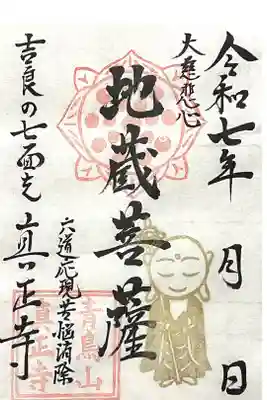 令和七年　月　日
大慈悲心
地蔵菩薩
六道応現苦悩消除
吉良の七面光
真正寺
青鳥山
真正寺